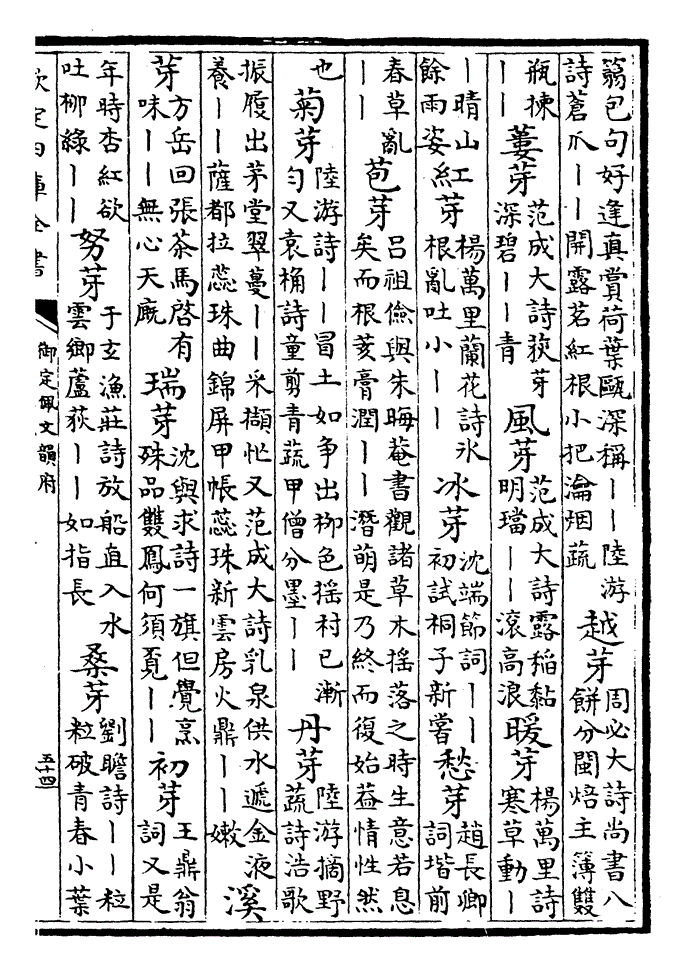 篛包句好逢真賞荷葉甌深稱丨丨陸游詩蒼爪丨丨開露茗紅根小把瀹烟蔬越芽周必大詩尚書八餅分閩焙主簿雙
瓶揀丨丨蔞芽范成大詩荻芽深碧丨丨青風芽范成大詩露稻黏明璫丨丨滚高浪暖芽楊萬里詩寒草動丨
丨晴山餘雨姿紅芽楊萬里蘭花詩氷根亂吐小丨丨冰芽沈端節詞丨丨初試桐子新嘗愁芽趙長卿詞堦前
春草亂丨丨苞芽吕祖儉與朱晦菴書觀諸草木揺落之時生意若息矣而根荄膏潤丨丨潛萌是乃終而復始葢情性然
也菊芽陸游詩丨丨冒土如争出栁色揺村已漸匀又袁桷詩童剪青蔬甲僧分墨丨丨丹芽陸游摘野蔬詩浩歌
振履出茅堂翠蔓丨丨采擷忙又范成大詩乳泉供水遞金液養丨丨薩都拉蕊珠曲錦屏甲帳蕊珠新雲房火鼎丨丨嫩溪
芽方岳回張茶馬啓有味丨丨無心天厩瑞芽沈與求詩一旗但覺烹殊品雙鳳何須覔丨丨初芽王鼎翁詞又是
年時杏紅欲吐柳綠丨丨努芽于玄漁莊詩放船直入水雲鄉蘆荻丨丨如指長桑芽劉瞻詩丨丨粒粒破青春小葉
欽定四庫全書
御定佩文韻府
五十四